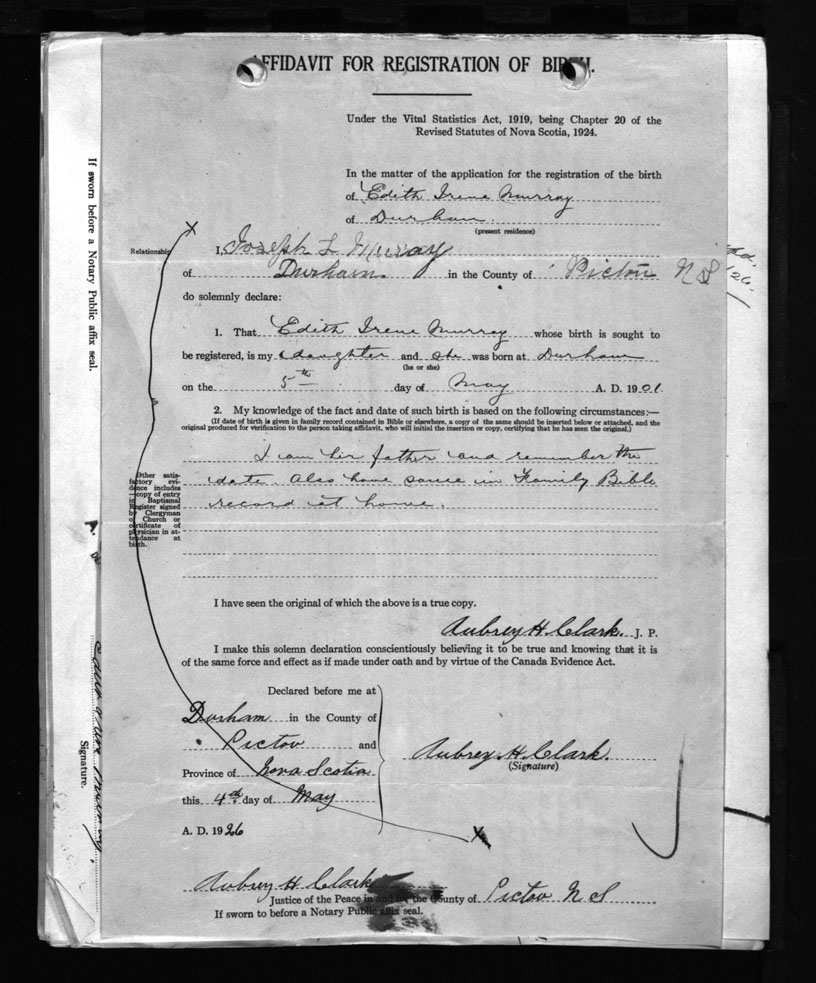 AFFIDAVIT FOR REGISTRATION OF BIRTH.
Under the Vital Statistics Act, 1919, being Chapter 20 of the
Revised Statutes of Nova Scotia, 1924.
In the matter of the application for the registration of the birth
of Edith Irene Murray
of Durham
(present residence)
Relationship
I, Joseph L Murray
of Durham in the County of Pictou N S
do solemnly declare:
1. That Edith Irene Murray whose birth is sought to
be registered, is my daughter and she was born at Durham
(he or she)
on the 5th day of May A. D. 1901.
2. My knowledge of the fact and date of such birth is based on the following circumstances:—
(If date of birth is given in family record contained in Bible or elsewhere, a copy of the same should be inserted below or attached, and the
original produced for verification to the person taking affidavit, who will initial the insertion or copy, certifying that he has seen the original.)
I am her father and remember the
date. Also have same in Family Bible
record at home.
Other satis-
factory evi-
dence includes
—copy of entry
in Baptismal
Register signed
by Clergyman
of Church or
certificate of
physician in at-
tendance at
birth.
I have seen the original of which the above is a true copy.
Aubrey H. Clark. J. P.
I make this solemn declaration conscientiously believing it to be true and knowing that it is
of the same force and effect as if made under oath and by virtue of the Canada Evidence Act.
Declared before me at
Durham in the County of
Pictou and
Province of Nova Scotia
this 4th day of May
A. D. 1926
Aubrey H. Clark.
(Signature)
Aubrey H Clark
Justice of the Peace in and for the County of Pictou N S
If sworn to before a Notary Public affix seal.
If sworn before a Notary Public affix seal.
A.
Signature.